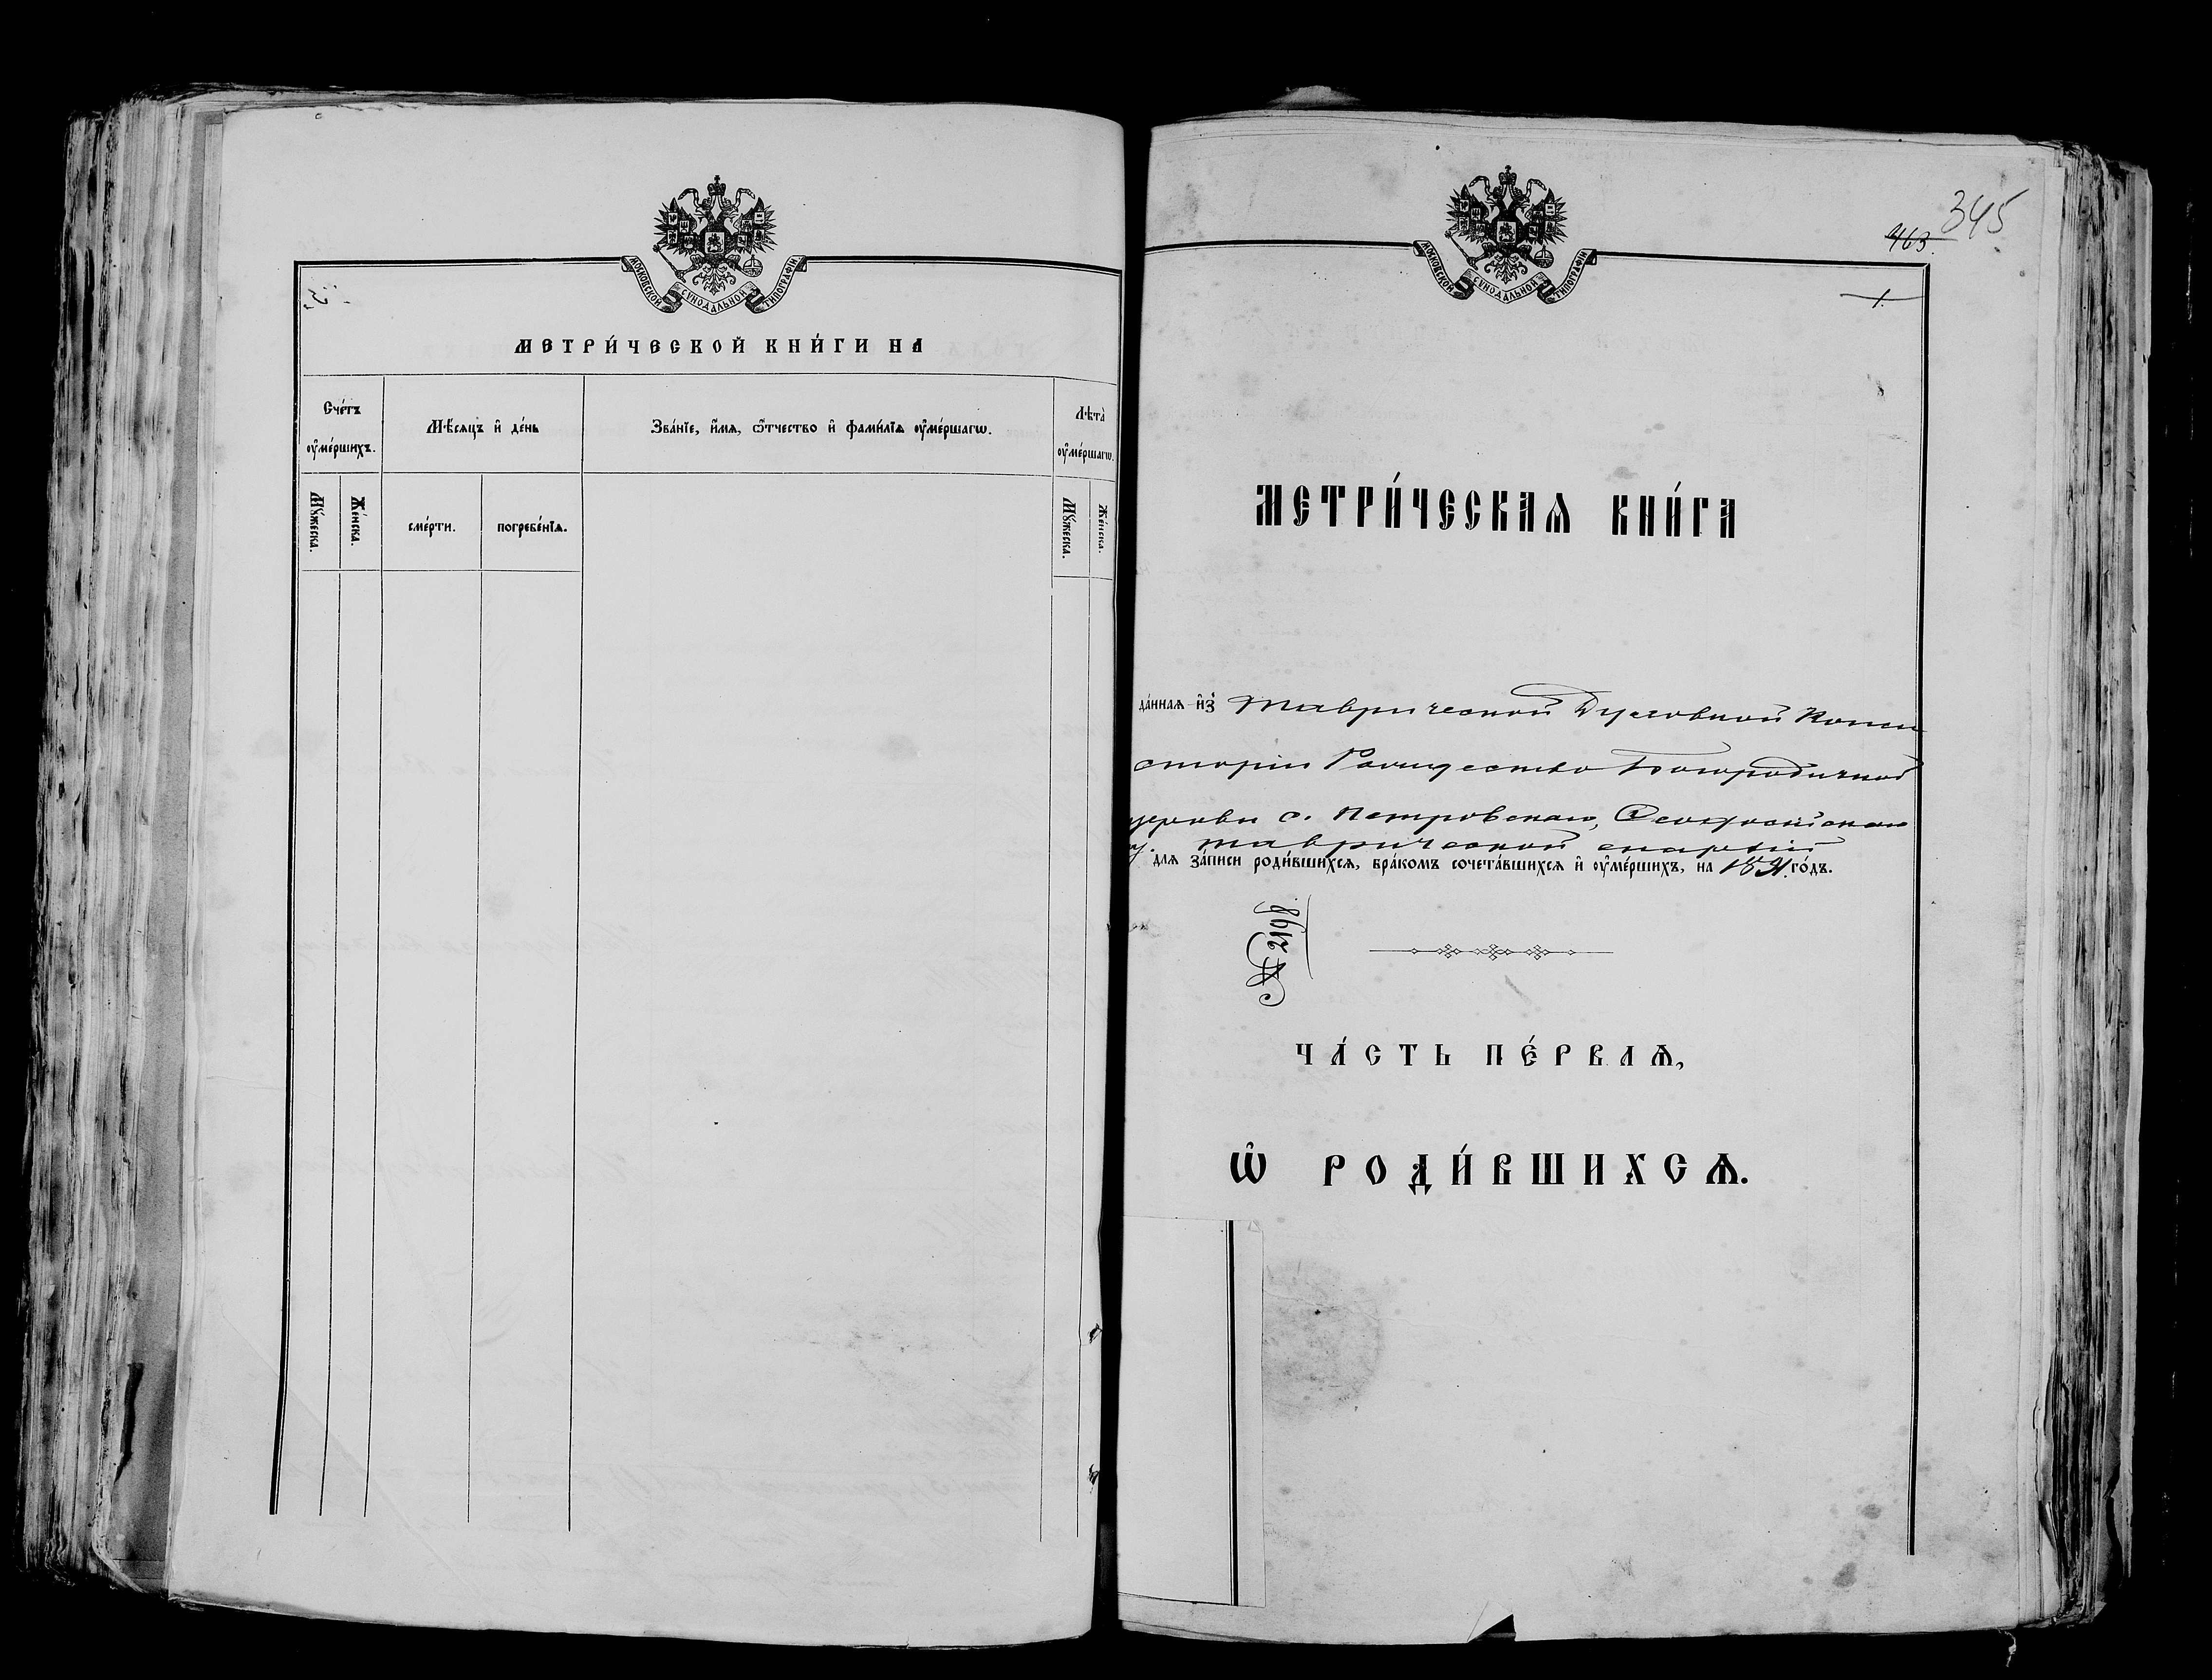 МОСКОВСКОЙ СѴНОДАЛЬНОЙ ТИПОГРАФІИ
МЕТРИ́ЧЕСКОЙ КНИ́ГИ НА
Сче́тъ ᲂу҆ме́ршихъ.
Мѣ́сяцъ и҆ де́нь
Зва́нїе, и҆́мѧ, ѻ҆́тчество и҆ фами́лїѧ ᲂу҆ме́ршагѡ.
Лѣта̀ ᲂу҆ме́ршагѡ.
Мꙋ́жеска.
Же́нска.
сме́рти.
погребе́нїѧ.
Мꙋ́жеска.
Же́нска.
МОСКОВСКОЙ СѴНОДАЛЬНОЙ ТИПОГРАФІИ
345
463.
1.
МЕТРИ́ЧЕСКАѦ КНИ́ГА
да́ннаѧ и҆з̾ Таврической Духовной Конси
сторіи Рождество Богородичной
церкви с. Петровскаго, Ѳеодосійскаго
у. Таврической епархіи
для за́писи роди́вшихсѧ, бра́комъ сочета́вшихсѧ и҆ ᲂу҆ме́ршихъ, на 1891 го́дъ.
№ 2198.
ЧА́СТЬ ПЕ́РВАѦ,
Ѡ҆ РОДИ́ВШИХСѦ.